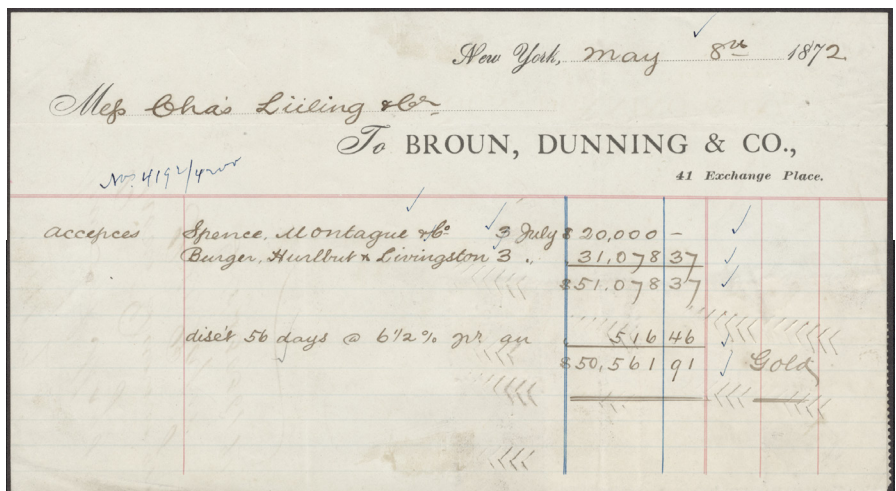 New York, May 8th 1872
Mess Chas Lüling & Co
To BROUN, DUNNING & CO.,
41 Exchange Place.
No. 4192/4200
accepces Spence, Montague & Co 3 July $ 20,000 –
Burger, Hurlbut & Livingston 3 " 31,078 37
$51,078 37
disc't 56 days @ 6 1/2 % pr an 516 46
$50,561 91 Gold